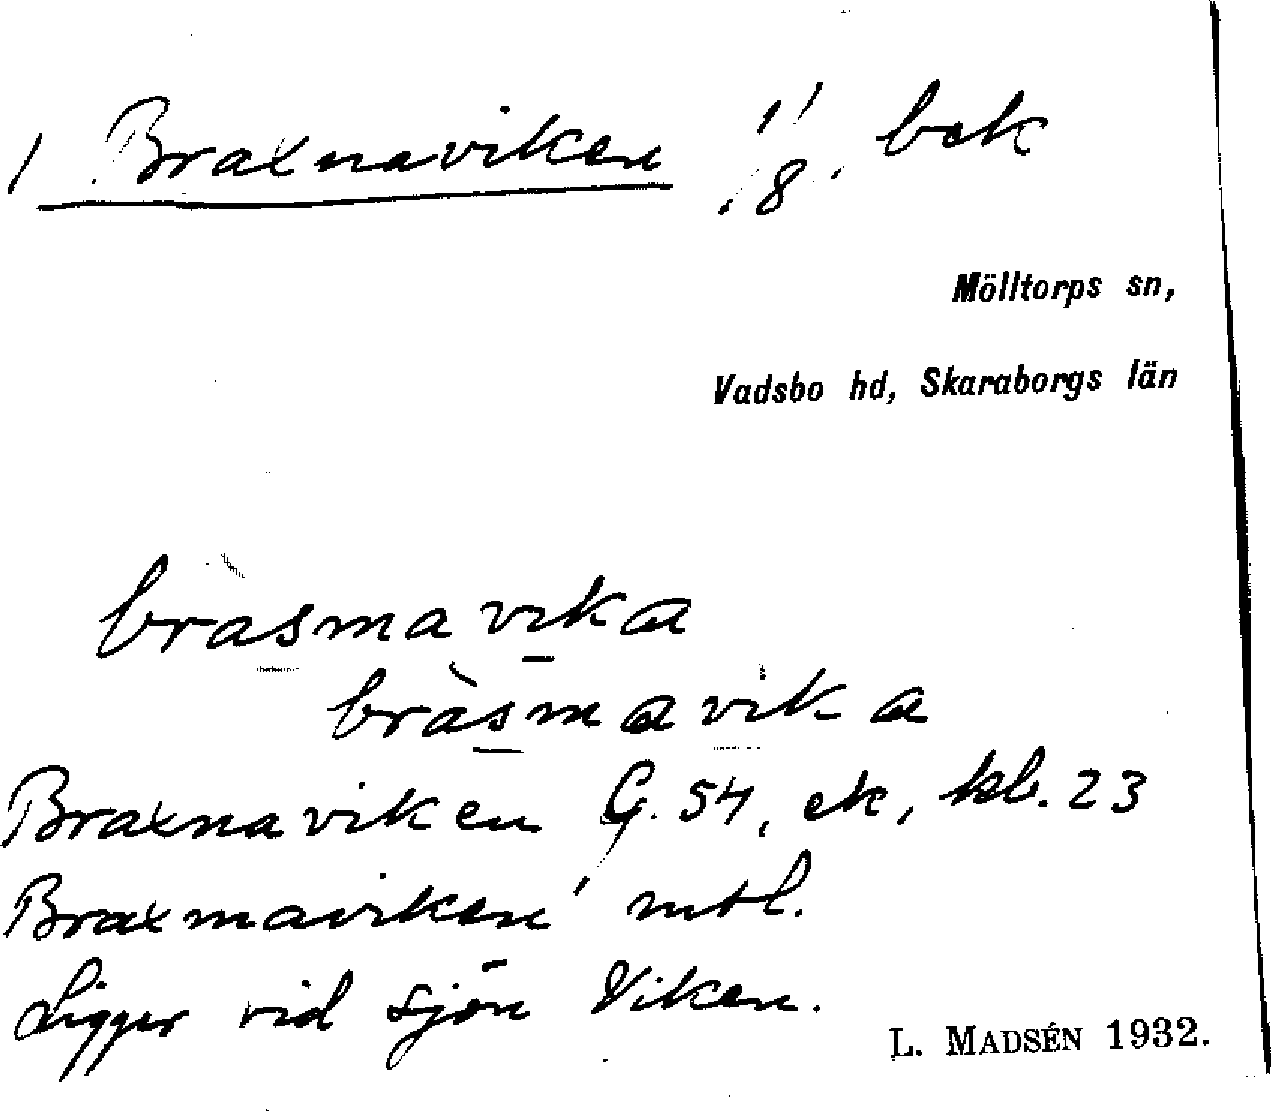 1 Braxnaviken 1/8 bek
Mölltorps sn,
Vadsbo hd, Skaraborgs län
bràsmavika
bràsmavika
Braxnaviken G. 54, ek, kb. 23
Braxmaviken mtl.
Ligger vid sjön Viken.
L. MADSÉN 1932.